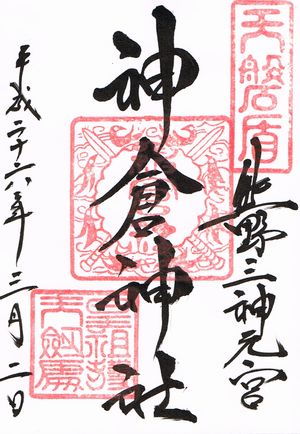 天磐盾
熊野三神元宮
神倉神社
平成二十六年三月二日